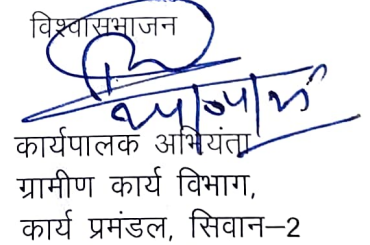 विश्वासभाजन
कार्यपालक अभियंता
ग्रामीण कार्य विभाग,
कार्य प्रमंडल, सिवान–2